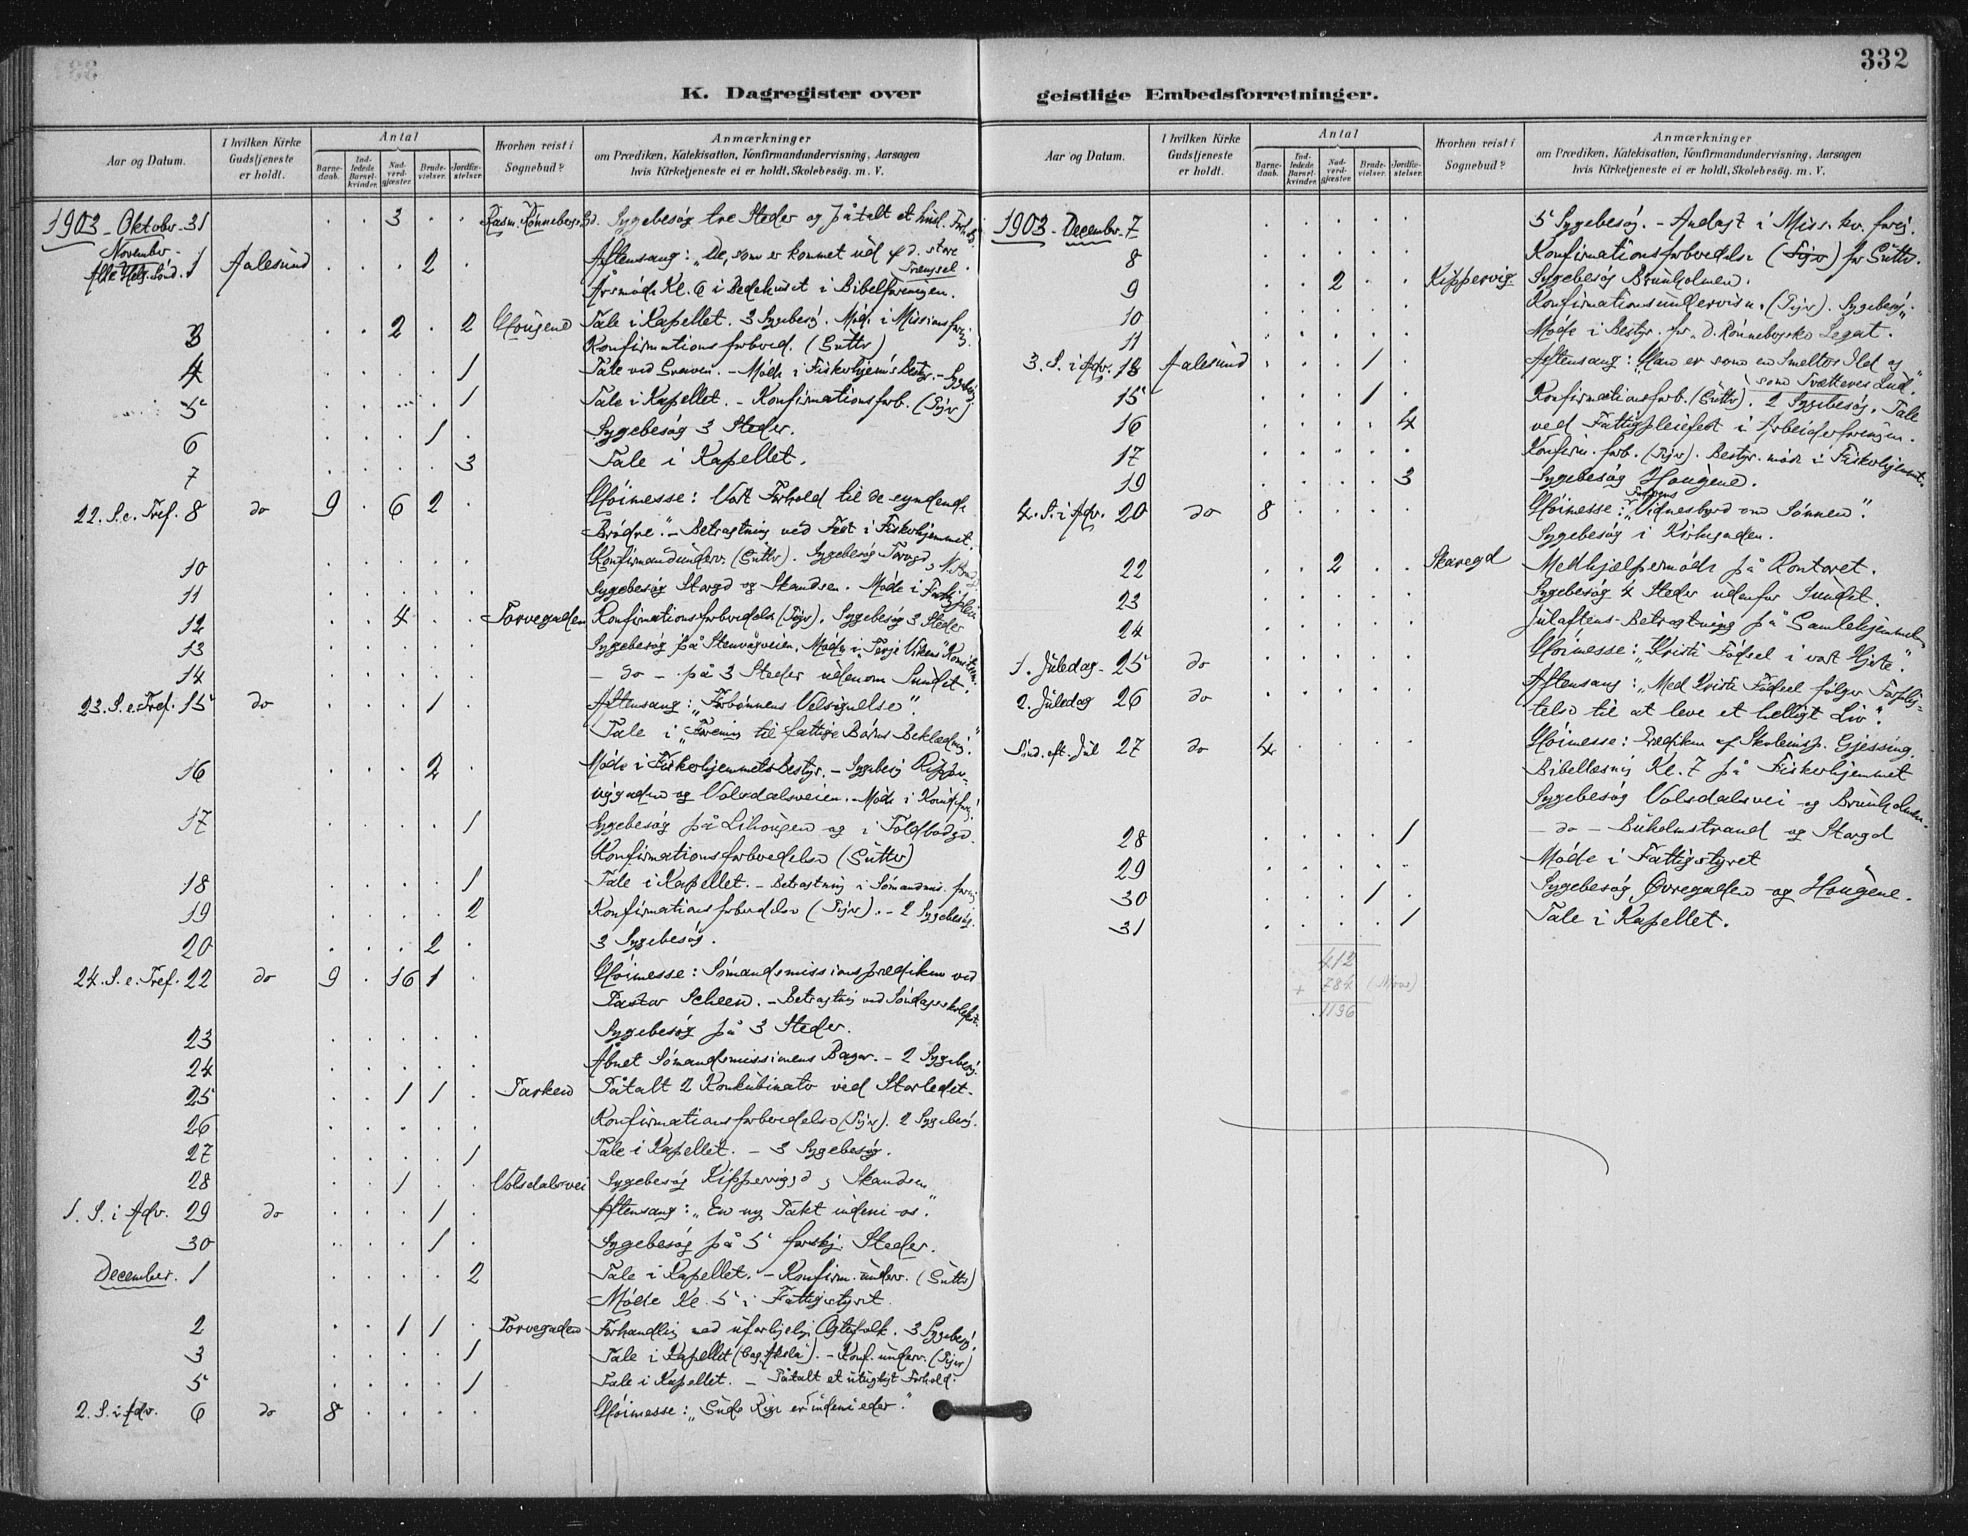 332
K. Dagregister over
Aar og Datum.
I hvilken Kirke Gudstjeneste er holdt.
Antal
Barnedaab.
Indledede Barselkvinder.
Nadverdgjæster.
Brudevielser.
Jordfæstelser.
Hvorhen reist i Sognebud?
Anmærkninger
om Prædiken, Katekisation, Konfirmandundervisning, Aarsagen
hvis Kirketjeneste ei er holdt, Skolebesög. m. V.
1903 - Oktober 31 . . 3 . . Rasm. Rønnebergs Gd. Sygebesøg tre Steder og påtalt et
November -
Alle Helg. Sønd. 1 Aalesund . . . 2 . Aftensang: „De, som er kommet ud af d. store
Trængsel.
Årsmøde Kl. 6 i Bedehuset i Bibelforeningen.
3 . . 2 . 2 Hougene Tale i Kapellet. 3 Sygebesøg. Møde i Missionsforg.
Konfirmationsforbered. (Gutter)
4 . . . . 1 Tale ved Graven. - Møde i Fiskerhjemmets Bestyr. - Sygebesøg
5 . . . . 1 Tale i Kapellet. - Konfirmationsforb. (Piger)
6 . . . 1 . Sygebesøg 3 Steder.
7 . . . . 3 Tale i Kapellet.
22. S. e. Tref. 8 do 9 . 6 2 . Høimesse: Vort Forhold til de syndende
Brødre." - Betragtning ved Fest i Fiskerhjemmet.
10 . . . . . Konfirmandunderv. (Gutter). Sygebesøg
11 . . . . . Sygebesøg Storgd og Skandsen. Møde i
12 . . 4 . . Torvegaden Konfirmationsforberedelse (Piger). Sygebesøg 3 Steder
13 . . . . . Sygebesøg på Stenvågveien. Møde i „Terje Vikens" Komite.
14 . . . . . - do - på 3 Steder udenom Sundet.
23. S. e. Tref. 15 do . . . 1 . Aftensang: „Forbønnens Velsignelse"
Tale i „Forening til fattige Børns Beklædning."
16 . . . 2 . Møde i Fiskerhjemmets Bestyr. - Sygebesøg Kipper-
viggaden og Volsdalsveien. Møde i
17 . . . . 1 Sygebesøg på Lihougen og i Toldbodgd.
Konfirmationsforberedelse (Gutter)
18 . . . . 1 Tale i Kapellet. - Betragtning i Sømandsmis. forg.
19 . . . . 2 Konfirmationsforberedelse (Piger). - 2 Sygebesøg.
20 . . . 2 . 3 Sygebesøg.
24. S. e. Tref. 22 do 9 . 16 1 . Høimesse: Sømandsmissionsprædiken ved
Pastor Scheen. - Betragtning ved Søndagsskolefest.
23 . . . . . Sygebesøg på 3 Steder.
24 . . . . . Åbnet Sømandsmissionens Bazar. - 2 Sygebesøg.
25 . . 1 1 . Parken Påtalt 2 Konkubinater ved Storledet.
26 . . . . . Konfirmationsforberedelse (Piger). 2 Sygebesøg.
27 . . . . 1 Tale i Kapellet. - 3 Sygebesøg.
28 . . 1 . . Volsdalsvei Sygebesøg Kipperviggd, Skandsen
1. S. i Adv. 29 do . . . 1 . Aftensang: „En ny Pakt indeni os."
30 . . . 1 . Sygebesøg på 5 forskj. Steder.
December. 1 . . . . 2 Tale i Kapellet. - Konfirm. underv. (Gutter)
Møde Kl. 5 i Fattigstyret.
2 . . 1 1 . Torvegaden Forhandling med uforligelige Ægtefolk. 3 Sygebesøg.
3 . . . . 1 Tale i Kapellet - Konf. underv. (Piger)
5 . . . . 1 Tale i Kapellet. - Påtalt et utugtigt Forhold.
2. S. i Adv. 6 do 8 . . . . Høimesse: „Guds Rige er indeni eder."
geistlige Embedsforretninger.
Aar og Datum.
I hvilken Kirke Gudstjeneste er holdt.
Antal
Barnedaab.
Indledede Barselkvinder.
Nadverdgjæster.
Brudevielser.
Jordfæstelser.
Hvorhen reist i Sognebud?
Anmærkninger
om Prædiken, Katekisation, Konfirmandundervisning, Aarsagen
hvis Kirketjeneste ei er holdt, Skolebesög. m. V.
1903 - December. 7 . . . . . 5 Sygebesøg. - Andagt i Miss. kv. forg.
8 . . . . . Konfirmationsforberedelse (Piger) for Gutter.
9 . . 2 . . Kippervig Sygebesøg Brunholmen.
10 . . . . . Konfirmationsundervisn. (Piger). Sygebesøg.
11 . . . . . Møde i Bestyr. for „D. Rønnebergske Legat.
3. S. i Adv. 13 Aalesund . . . 1 . Aftensang: „Han er som en Smelters Ild og
som Tvætteres Lud."
15 . . . 1 . Konfirmationsforb. (Gutter). 2 Sygebesøg. Tale
16 . . . . 4 ved Fattigpleiefest i Arbeiderforeningen.
17 . . . . . Konfirm. forb. (Piger). Bestyr. møde i Fiskerhjemmet.
19 . . . . 3 Sygebesøg Hougene.
4. S. i Adv. 20 do 8 . . . . Høimesse: „Vidnesbyrd om Sønnen".
Sygebesøg i Kirkegaden.
22 . . 2 . . Skaregd Medhjælpermøde på Kontoret.
23 . . . . . Sygebesøg 4 Steder udenfor Sundet.
24 . . . . . Juleaftens-Betragtning på Gamlehjemmet
1. Juledag - 25 do . . . . . Høimesse: „Kristi Fødsel i vort Hjerte".
2. Juledag 26 do . . . . . Aftensang: „Med Kristi Fødsel følger Forplig-
telse til at leve et helligt Liv".
Sønd. eft. Jul 27 do 4 . . . . Høimesse: Prædiken af Skoleinsp. Gjessing.
Bibellæsning Kl. 7 på Fiskerhjemmet
Sygebesøg Volsdalsvei og Brunholmen.
28 . . . . 1 - do - Buholmstrand og Storgd
29 . . . . . Møde i Fattigstyret
30 . . . 1 . Sygebesøg Øvregaden og Hougene.
31 . . . . 1 Tale i Kapellet.
412
+ 784
1196